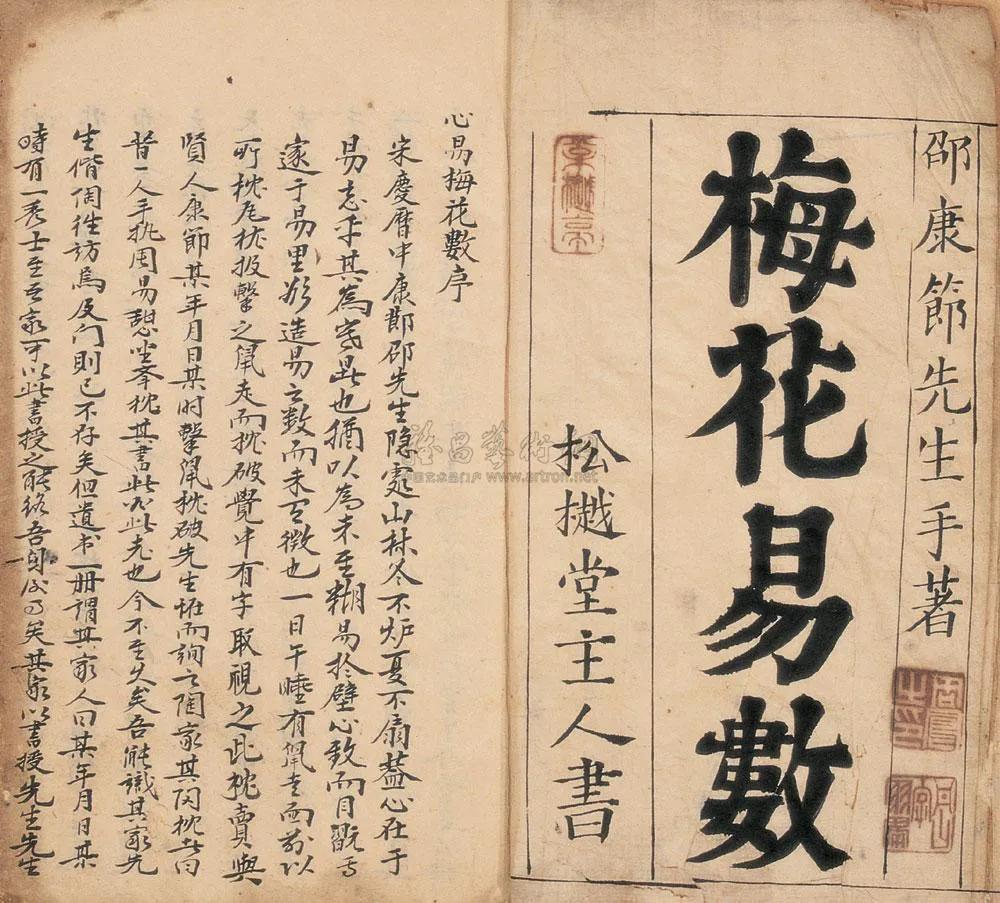 邵康節先生手著
梅花易數
松樾堂主人書
心易梅花數序
宋慶曆中康節邵先生隐處山林冬不炉夏不扇蓋心在于
易忘乎其為寒暑也猶以為未至糊易於壁心致而目翫焉
邃于易里欲造易之數而未有徵也一日午睡有鼠走而前以
所枕瓦枕投擊之鼠走而枕破覺中有字取視之此枕賣與
賢人康節某年月日某时擊鼠枕破先生怪而詢之陶家其閃枕者曰
昔一人手执周易憩坐举枕其書此必此老也今不至久矣吾能識其家先
生偕偶徃訪焉及门則已不存矣但遺书一册謂其家人曰某年月日某
時有一秀士至吾家可以此書授之能終吾身後事矣其家以書授先生先生
www.artron.net